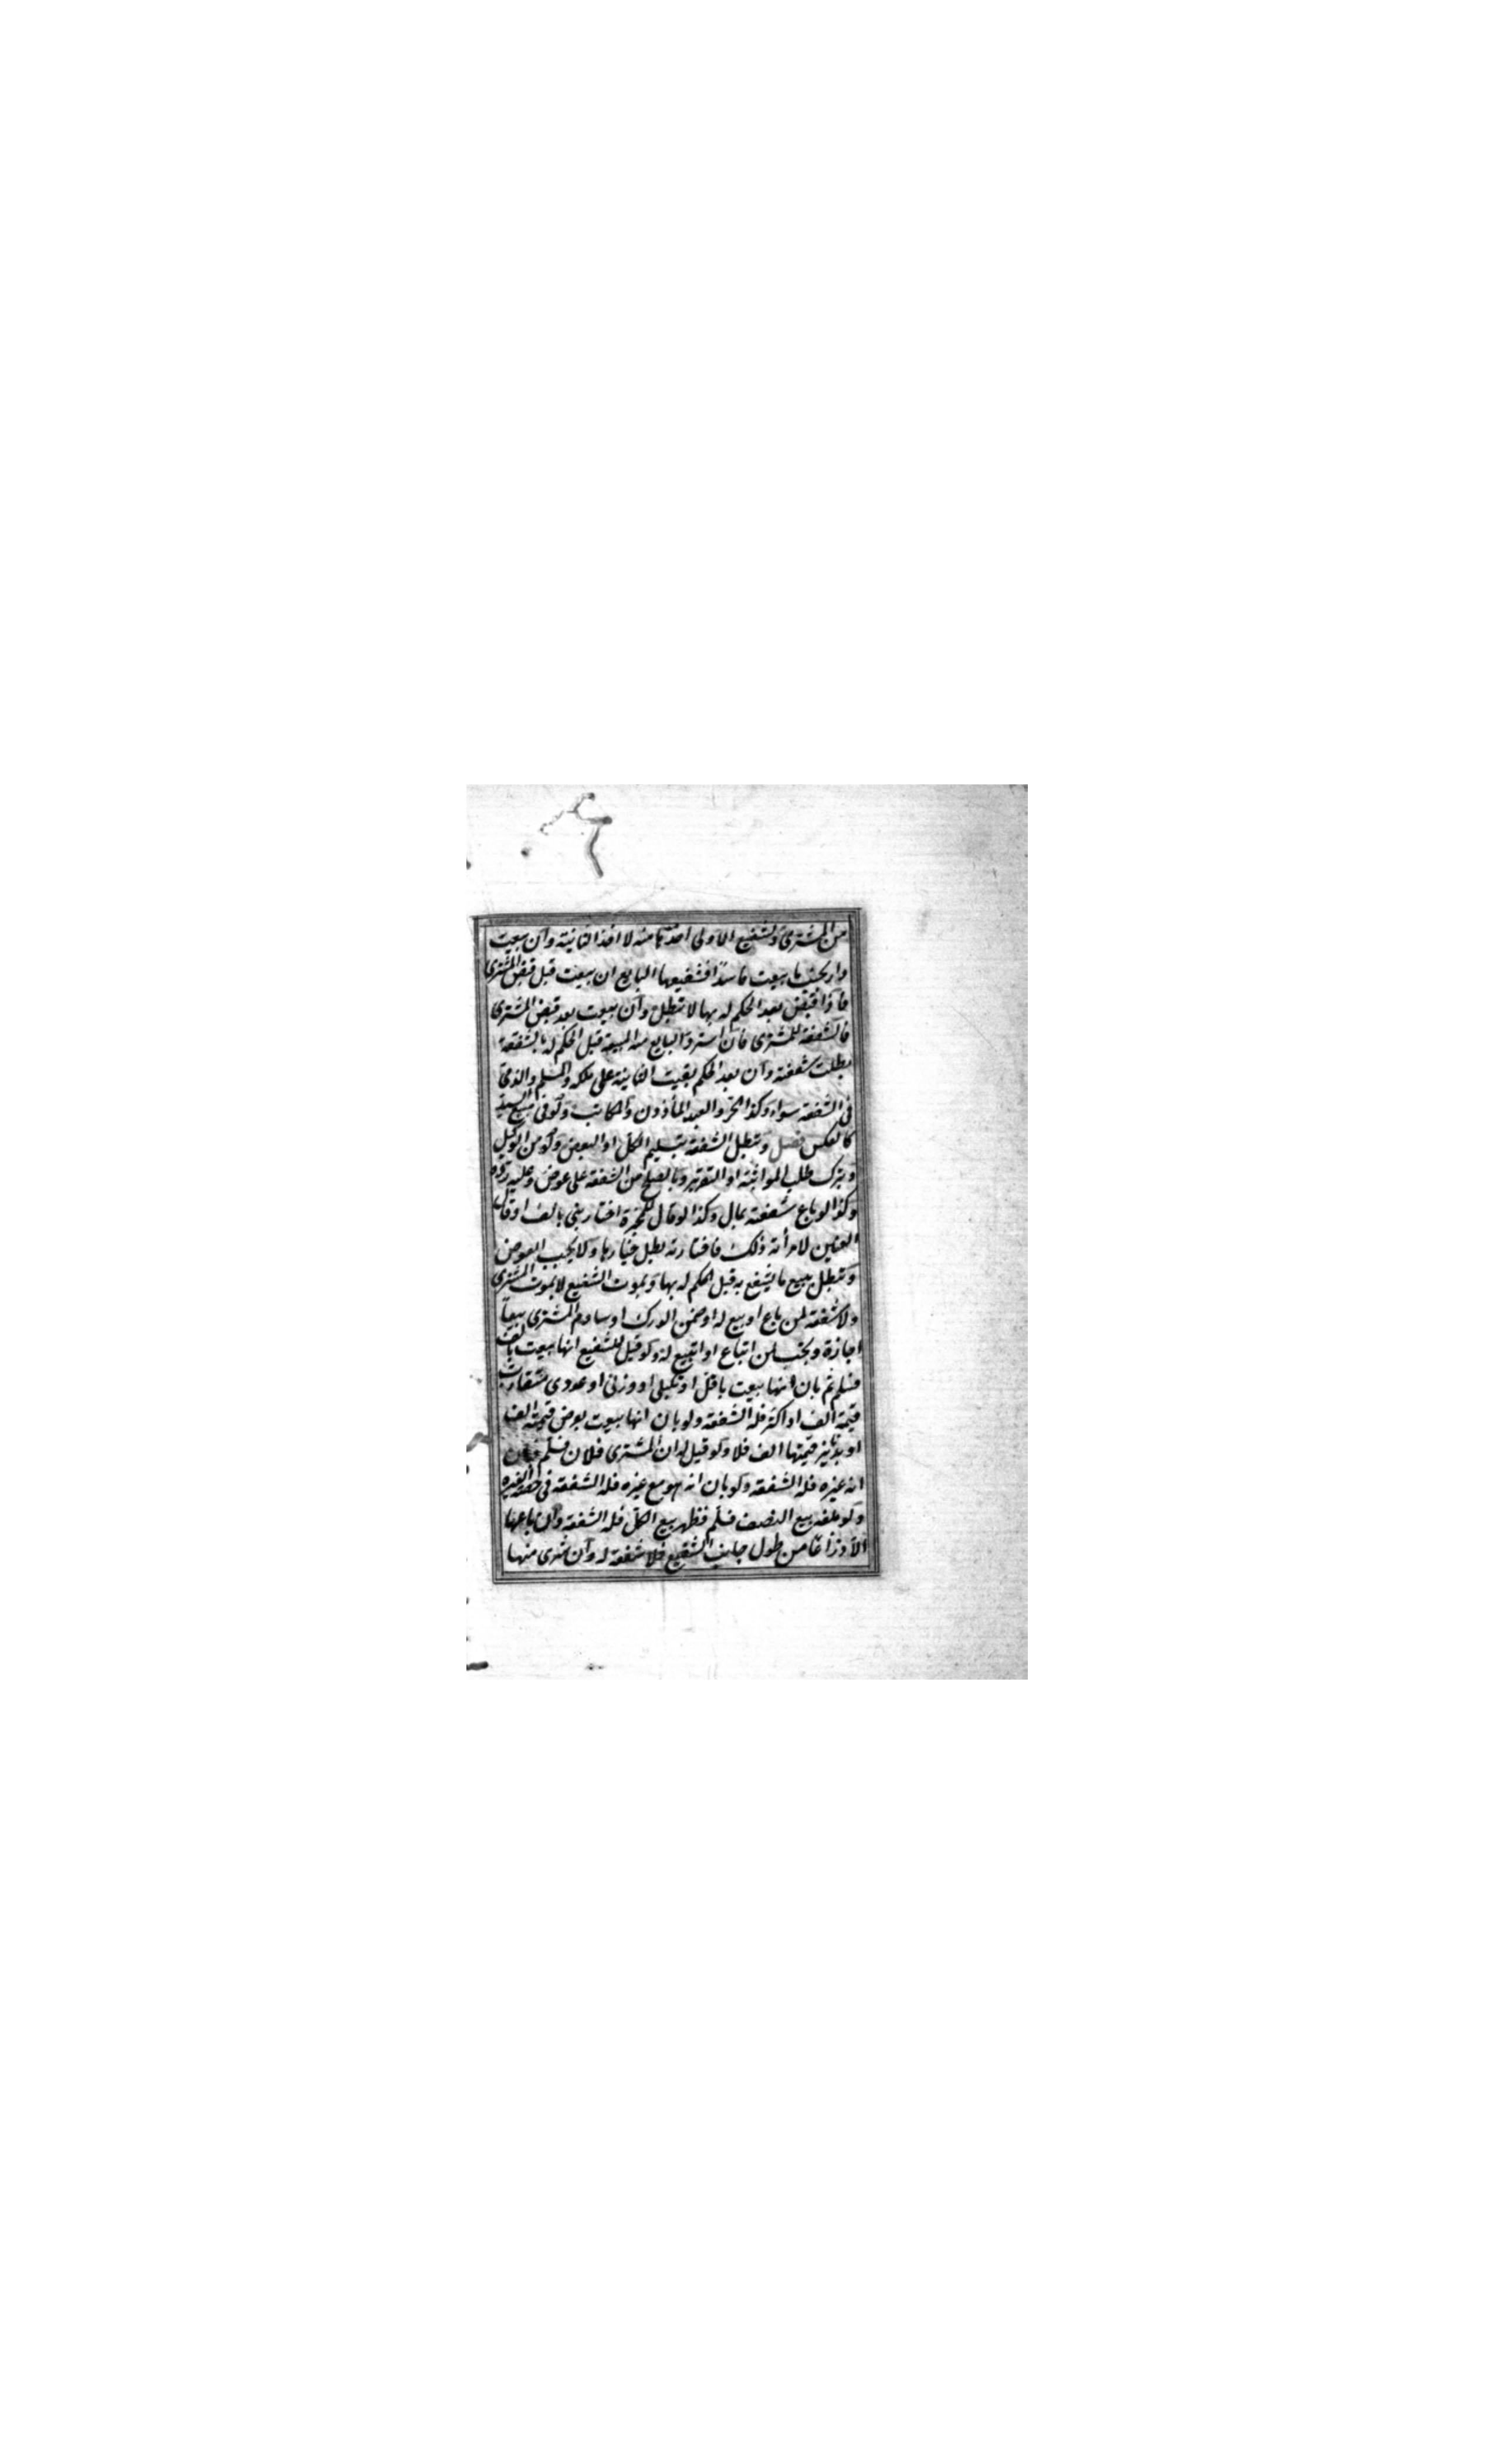 من المشترى ولشفيع الاولى اخذها منه لا اخذ الثانية وان بيعت
دار بجنب ما بيعت فاسدا فشفيعها البايع ان بيعت قبل قبض المشترى
فاذا قبض بعد الحكم له بها لا تبطل وان بيعت بعد قبض المشترى
فالشفعة للمشترى فان استرد البايع منه المبيعة قبل الحكم له بالشفعة
بطلت شفعته وان بعد الحكم بقيت الثانية على ملكه والمسلم والذمى
فى الشفعة سواء وكذا الحر والعبد المأذون والمكاتب ولو فى مبيع السيد
كالعكس فصل وتبطل الشفعة بتسليم الكل او البعض ولو من الوكيل
وبترك طلب المواثبة او التقرير وبالصلح من الشفعة على عوض وعليه رده
وكذا لو باع شفعته بمال وكذا لو قال للمخيرة اختارينى بالف او قال
العنين لامرأته ذلك فاختارته بطل خيارها ولا يجب العوض
وتبطل ببيع ما يشفع به قبل الحكم له بها وبموت الشفيع لا بموت المشترى
ولا شفعة لمن باع او بيع له او ضمن الدرك او ساوم المشترى بيعاً
اجازة وتجب لمن ابتاع او ابتيع له ولو قيل للشفيع انها بيعت بالف
فسلم ثم بان انها بيعت باقل او بكيلى او وزنى او عددى متقارب
قيمة الف او اكثر فله الشفعة ولو بان انها بيعت بعرض قيمته الف
او بدنانير قيمتها الف فلا ولو قيل له ان المشترى فلان فسلم فبان
انه غيره فله الشفعة ولو بان انه هو مع غيره فله الشفعة فى حصة الغير
ولو بلغه بيع النصف فسلم فظهر بيع الكل فله الشفعة وان باعها
الا ذراعا من طول جانب الشفيع فلا شفعة له وان شرى منها